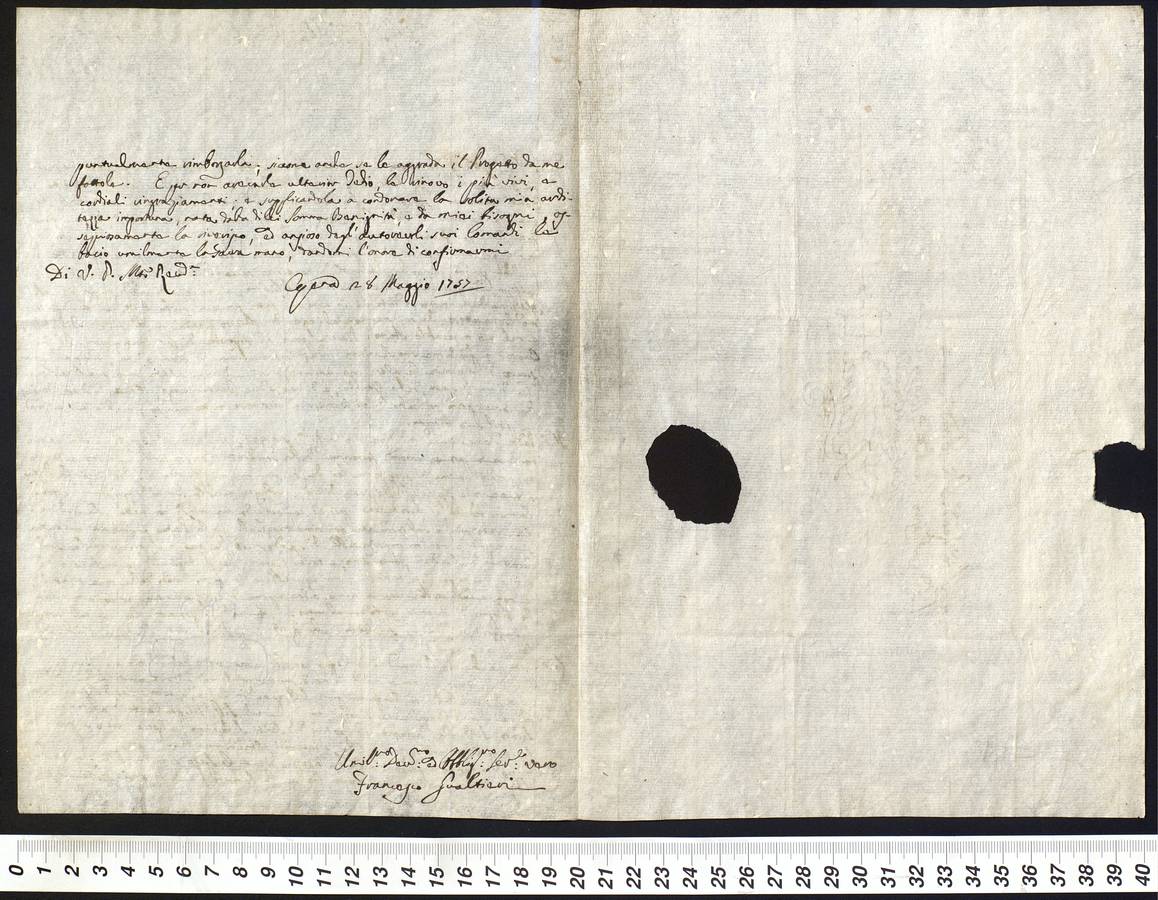 puntualmente rimborzarla; siccome anche se le aggrada il Progetto da me
fattole. E per non avecarle ulterior tedio, le rinovo i più vivi, e
cordiali ringraziamenti; e supplicandola a condonare la solita mia ardi-
tezza importuna, nata dalla di lei somma Benignità, e da miei bisogni, os-
sequiosamente la riverisco, ed ansioso degl'autorevoli suoi Comandi le
bacio umilmente la Sacra mano, dandomi l'onore di confirmarmi
Di V. P. Mto Revd.
28 Maggio 1757
Umil.mo Dev.mo ed Obblig.mo Ser.e vero
Francesco Gualtieri
0 1 2 3 4 5 6 7 8 9 10 11 12 13 14 15 16 17 18 19 20 21 22 23 24 25 26 27 28 29 30 31 32 33 34 35 36 37 38 39 40